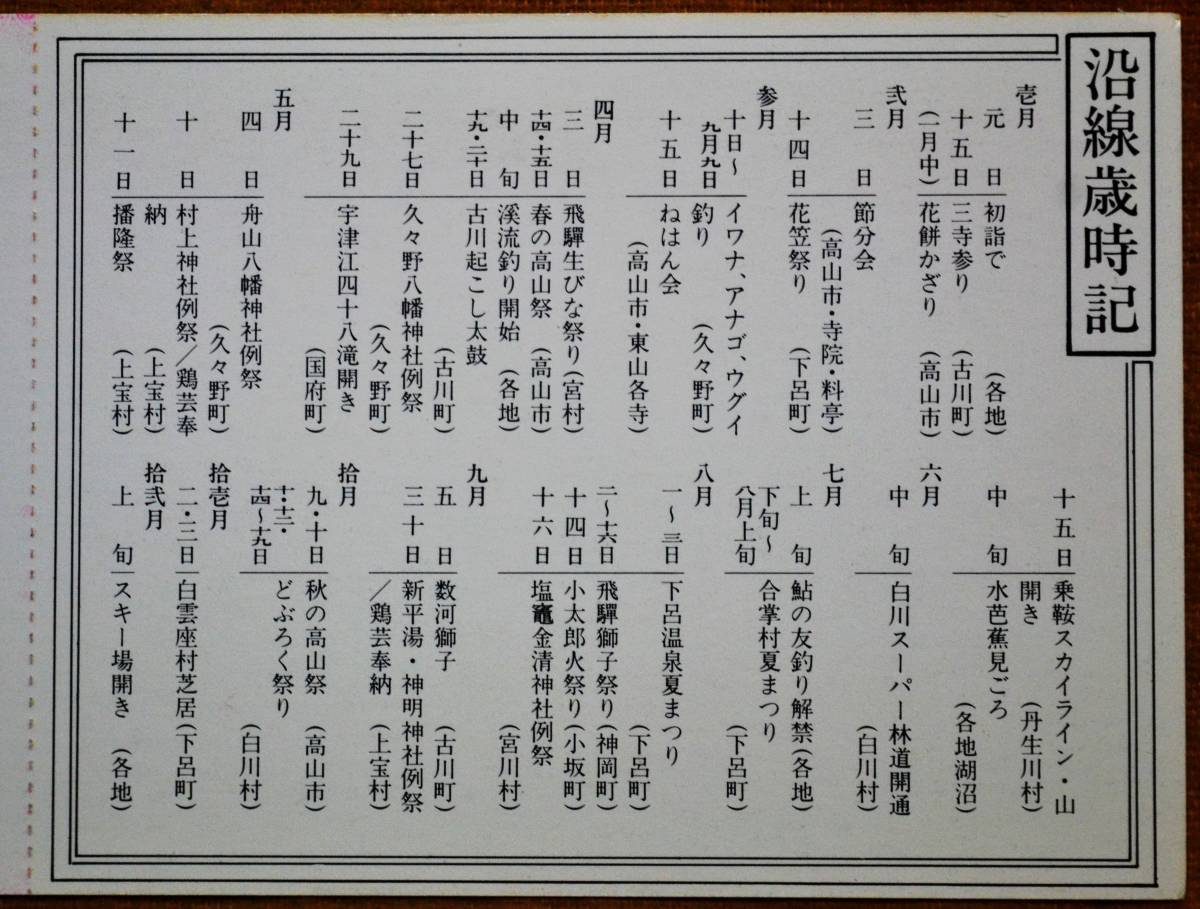 沿線歳時記
壱月
元日 初詣で (各地)
十五日 三寺参り (古川町)
(一月中) 花餅かざり (高山市)
弐月
三日 節分会
(高山市・寺院・料亭)
十四日 花笠祭り (下呂町)
参月
十日〜 イワナ、アナゴ、ウグイ
九月九日 釣り (久々野町)
十五日 ねはん会
(高山市・東山各寺)
四月
三日 飛驒生びな祭り (宮村)
十四・十五日 春の高山祭 (高山市)
中旬 溪流釣り開始 (各地)
十九・二十日 古川起こし太鼓
(古川町)
二十七日 久々野八幡神社例祭
(久々野町)
二十九日 宇津江四十八滝開き
(国府町)
五月
四日 舟山八幡神社例祭
(久々野町)
十日 村上神社例祭／鶏芸奉
納 (上宝村)
十一日 播隆祭 (上宝村)
十五日 乗鞍スカイライン・山
開き (丹生川村)
中旬 水芭蕉見ごろ
(各地湖沼)
六月
中旬 白川スーパー林道開通
(白川村)
七月
上旬 鮎の友釣り解禁 (各地)
下旬〜 合掌村夏まつり
八月上旬 (下呂町)
八月
一〜三日 下呂温泉夏まつり
(下呂町)
二〜十六日 飛驒獅子祭り (神岡町)
十四日 小太郎火祭り (小坂町)
十六日 塩竈金清神社例祭
(宮川村)
九月
五日 数河獅子 (古川町)
三十日 新平湯・神明神社例祭
／鶏芸奉納 (上宝村)
拾月
九・十日 秋の高山祭 (高山市)
十・十二・ どぶろく祭り
十四〜十九日 (白川村)
拾壱月
二・三日 白雲座村芝居 (下呂町)
拾弐月
上旬 スキー場開き (各地)